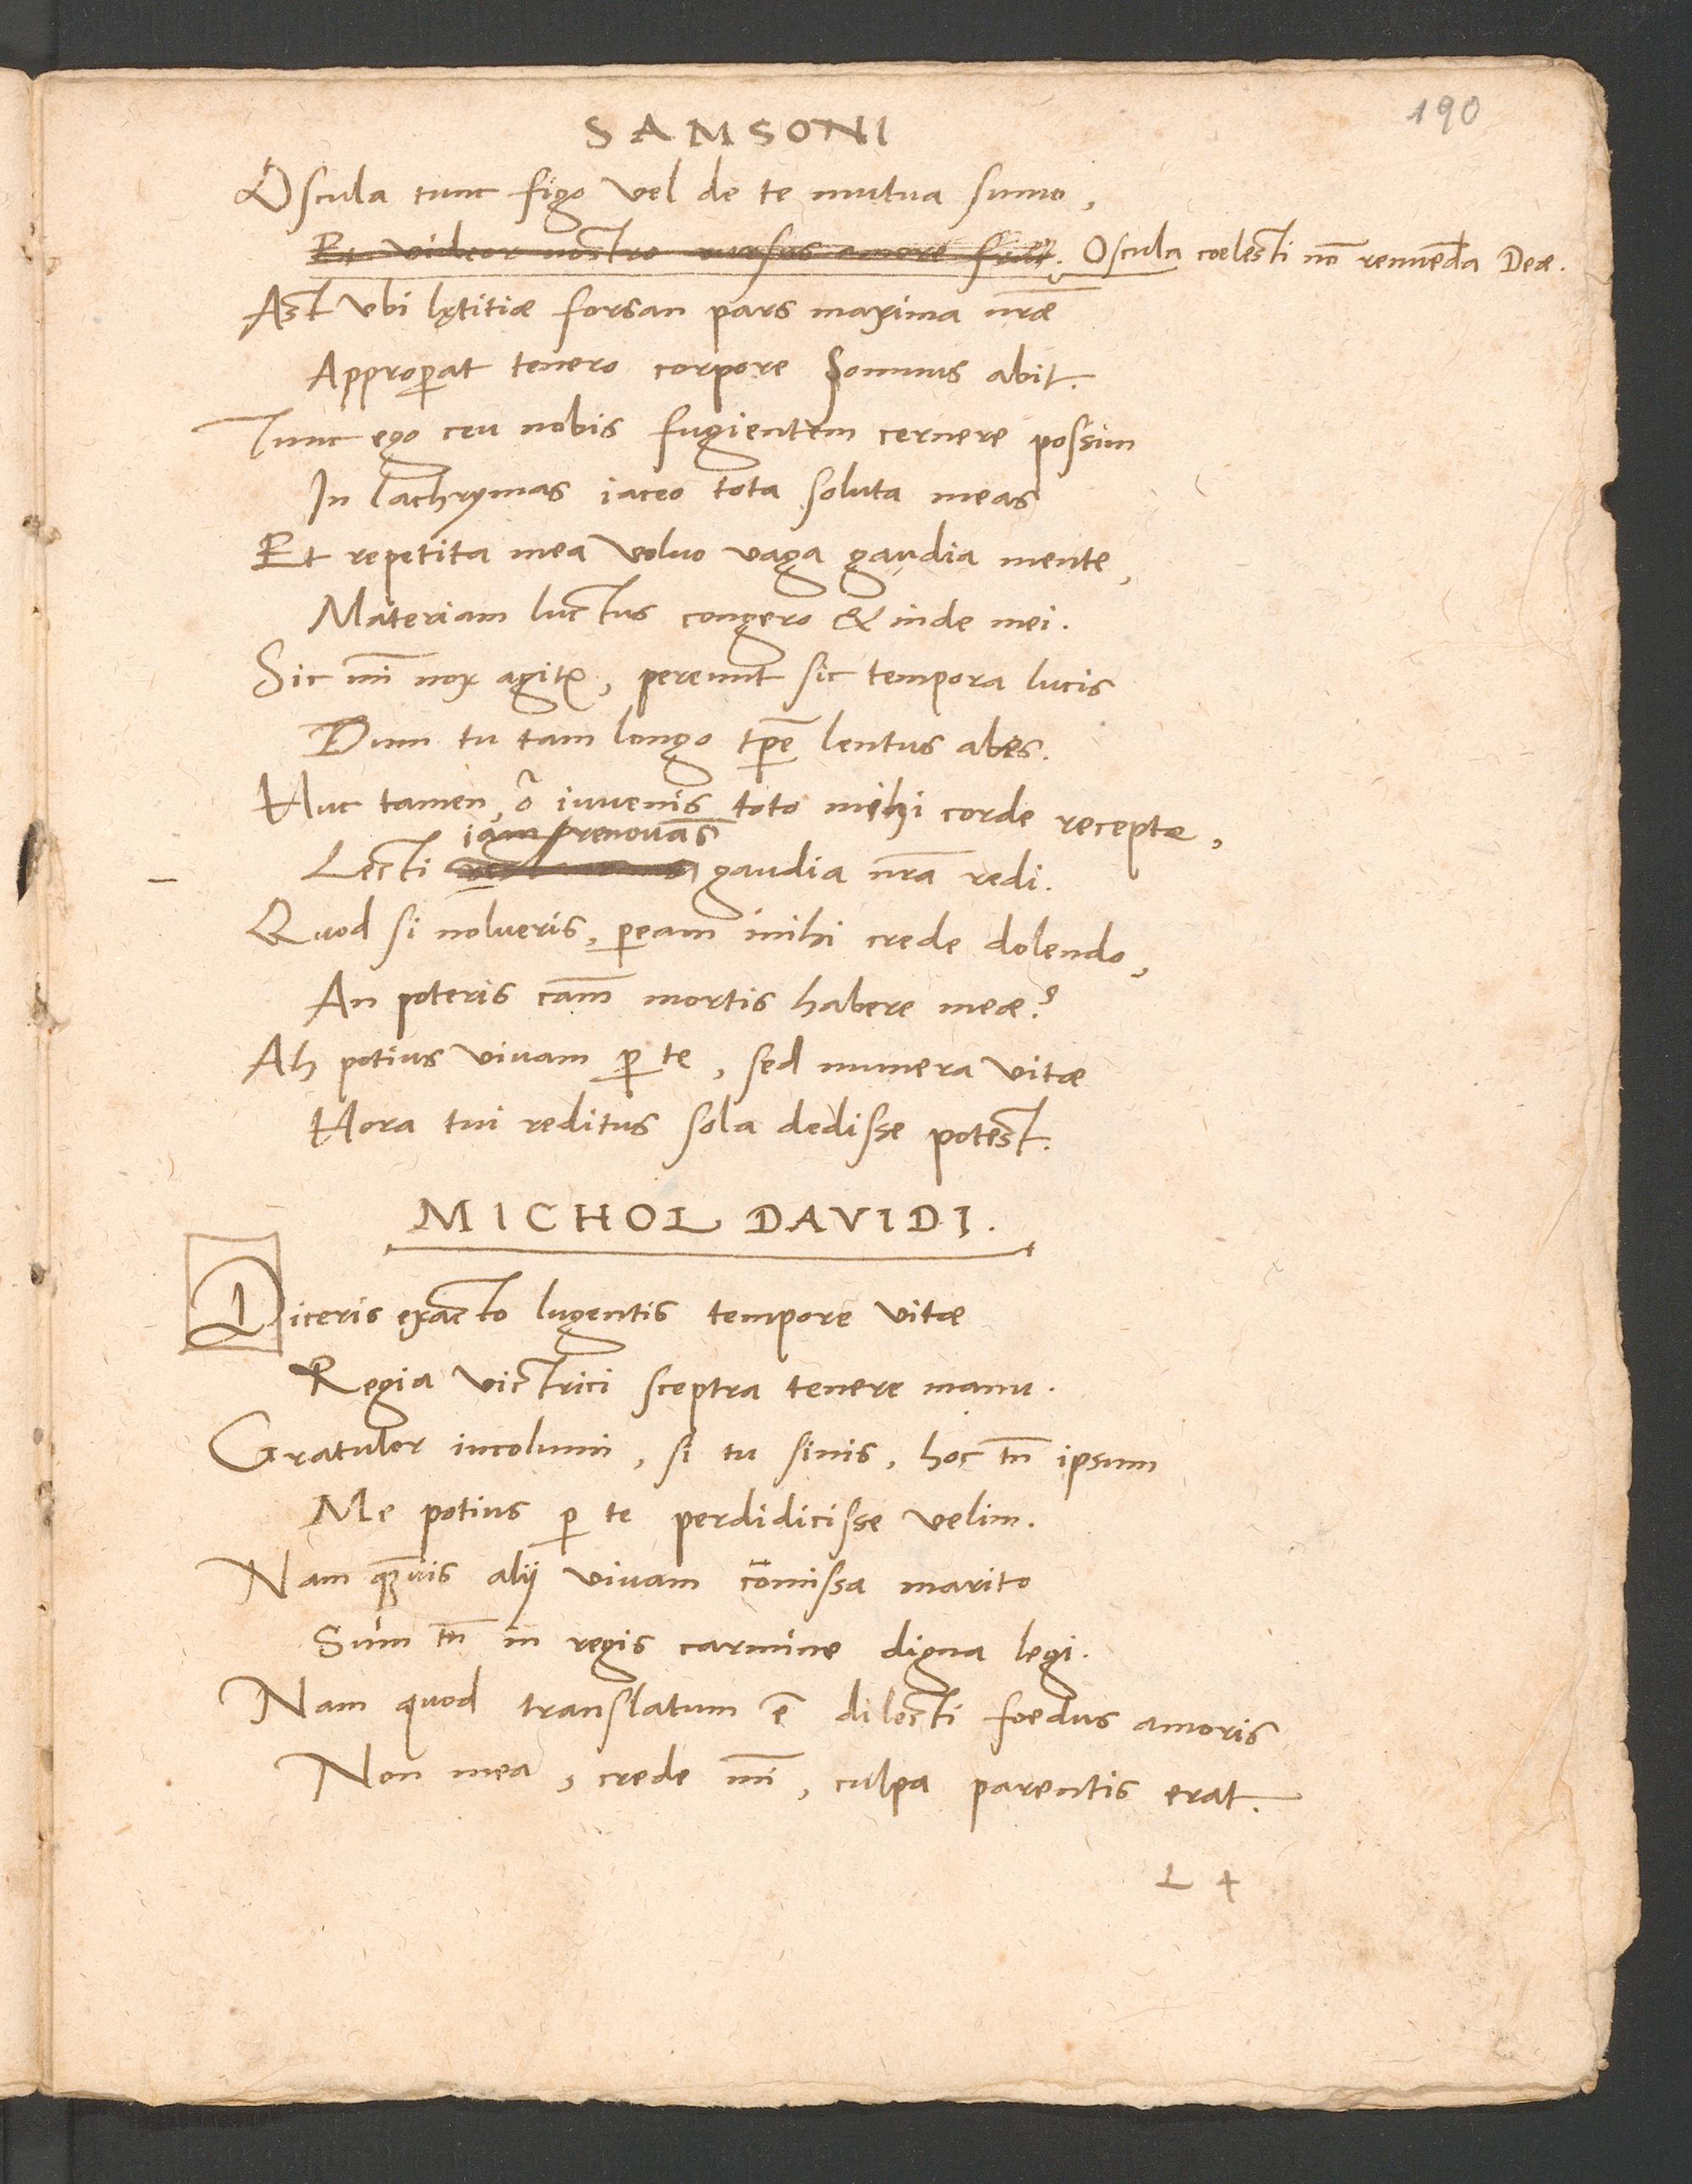 190
SAMSONI
Oscula tunc figo vel de te mutua sumo,
Et videor nostro rursus amore frui. Oscula coelesti nō renuenda Deæ.
Ast vbi lętitiæ forsan pars maxima nr̄æ
Approꝑat tenero corpore Somnus abit.
Tunc ego ceu nobis fugientem cernere possim
In lachrymas iaceo tota soluta meas
Et repetita mea voluo vaga gaudia mente,
Materiam luctus congero & inde mei.
Sic mī nox agitr, pereunt sic tempora lucis
Dum tu tam longo tꝑe lentus abes.
Huc tamen, ô iuuenis toto mihi corde recepte,
iam renouās
Lecti gaudia nr̄a redi.
Quod si nolueris, ꝑeam mihi crede dolendo,
An poteris cām mortis habere meæ?
Ah potius viuam ꝑ te, sed munera vitæ
Hora tui reditus sola dedisse potest.
MICHOL DAVIDI.
Diceris exacto lugentis tempore vitæ
Regia victrici sceptra tenere manu.
Gratulor incolumi, si tu sinis, hoc tn̄ ipsum
Me potius ꝑ te perdidicisse velim.
Nam quāuis alij viuam cōmissa marito
Sum tn̄ in regis carmine digna legi.
Nam quod translatum ē dilecti foedus amoris
Non mea, crede mī, culpa parentis erat.
L 4